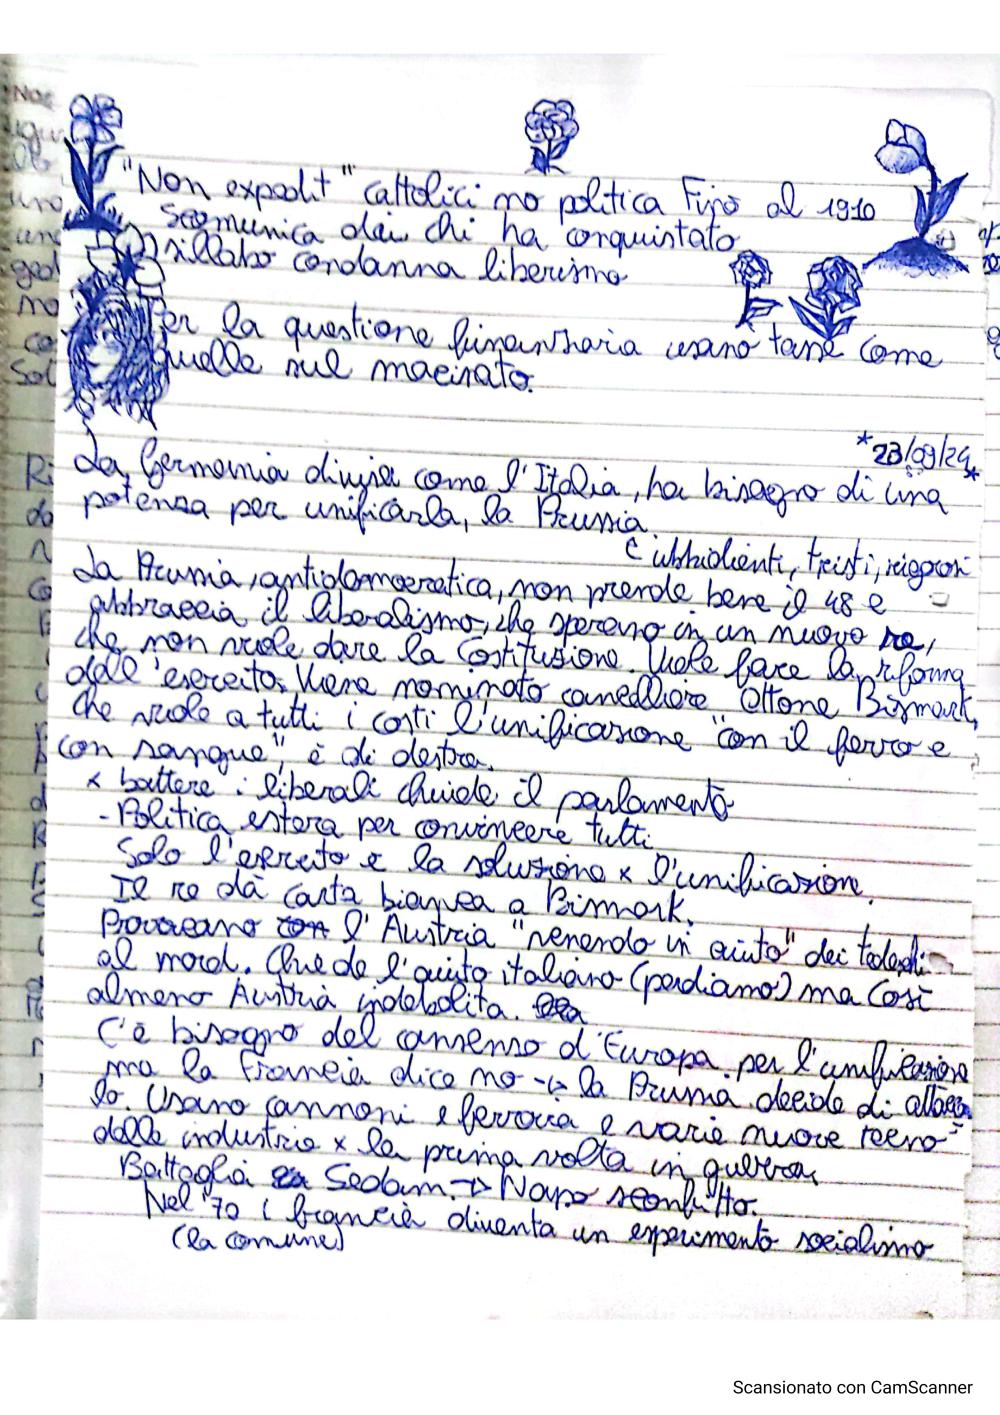 "Non expedit" cattolici no politica Fino al 1910
Scomunica dei chi ha conquistato
Sillabo condanna liberismo
Per la questione finanziaria usano tasse come
quelle sul macinato.
*23/09/24*
La Germania divisa come l'Italia, ha bisogno di una
potenza per unificarla, la Prussia
e ubbidienti, tristi, rigorosi
La Prussia, antidemocratica, non prende bene il 48 e
abbraccia il liberalismo, che sperano in un nuovo re,
che non vuole dare la Costituzione. Vuole fare la riforma
dell'esercito. Viene nominato cancelliere Ottone Bismark,
che vuole a tutti i costi l'unificazione "con il ferro e
con sangue", è di destra.
x battere i liberali chiude il parlamento
- Politica estera per convincere tutti.
Solo l'esercito è la soluzione x l'unificazione.
Il re dà carta bianca a Bismark.
Provocano con l'Austria "venendo in aiuto" dei tedeschi
al nord. Chiede l'aiuto italiano (perdiamo) ma così
almeno Austria indebolita.
C'è bisogno del consenso d'Europa per l'unificazione
ma la Francia dice no -> la Prussia decide di attacca
lo. Usano cannoni e ferrovia e varie nuove tecno-
dalle industrie x la prima volta in guerra.
Battaglia Sedam. -> Napo sconfitto.
Nel '70 la Francia diventa un esperimento socialismo
(la comune)
Scansionato con CamScanner